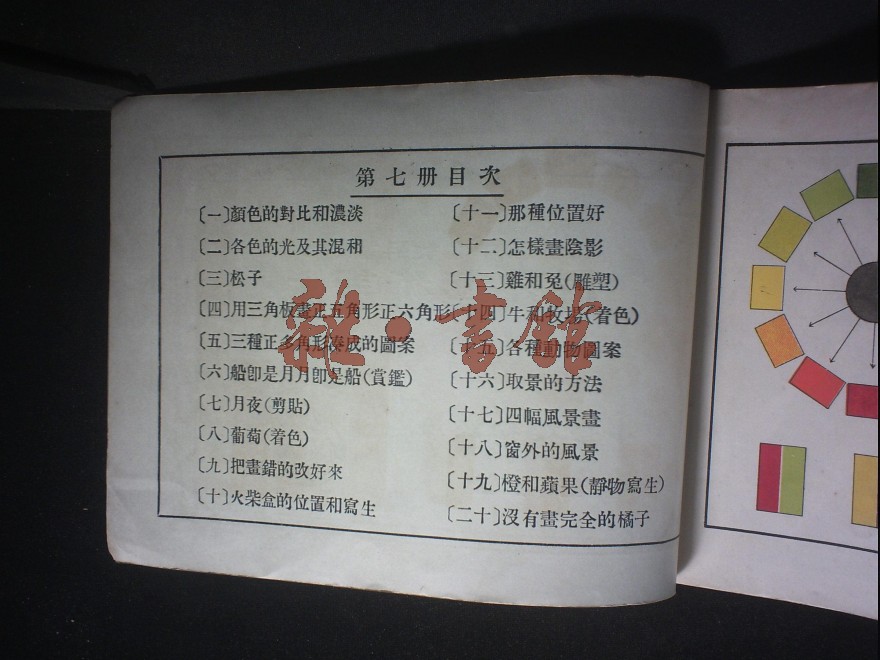 第七册目次
〔一〕顏色的對比和濃淡
〔二〕各色的光及其混和
〔三〕松子
〔四〕用三角板畫正五角形正六角形
〔五〕三種正多角形湊成的圖案
〔六〕船卽是月月卽是船(賞鑑)
〔七〕月夜(剪貼)
〔八〕葡萄(着色)
〔九〕把畫錯的改好來
〔十〕火柴盒的位置和寫生
〔十一〕那種位置好
〔十二〕怎樣畫陰影
〔十三〕雞和兔(雕塑)
〔十四〕牛和牧場(着色)
〔十五〕各種動物圖案
〔十六〕取景的方法
〔十七〕四幅風景畫
〔十八〕窗外的風景
〔十九〕橙和蘋果(靜物寫生)
〔二十〕沒有畫完全的橘子
雜·書館